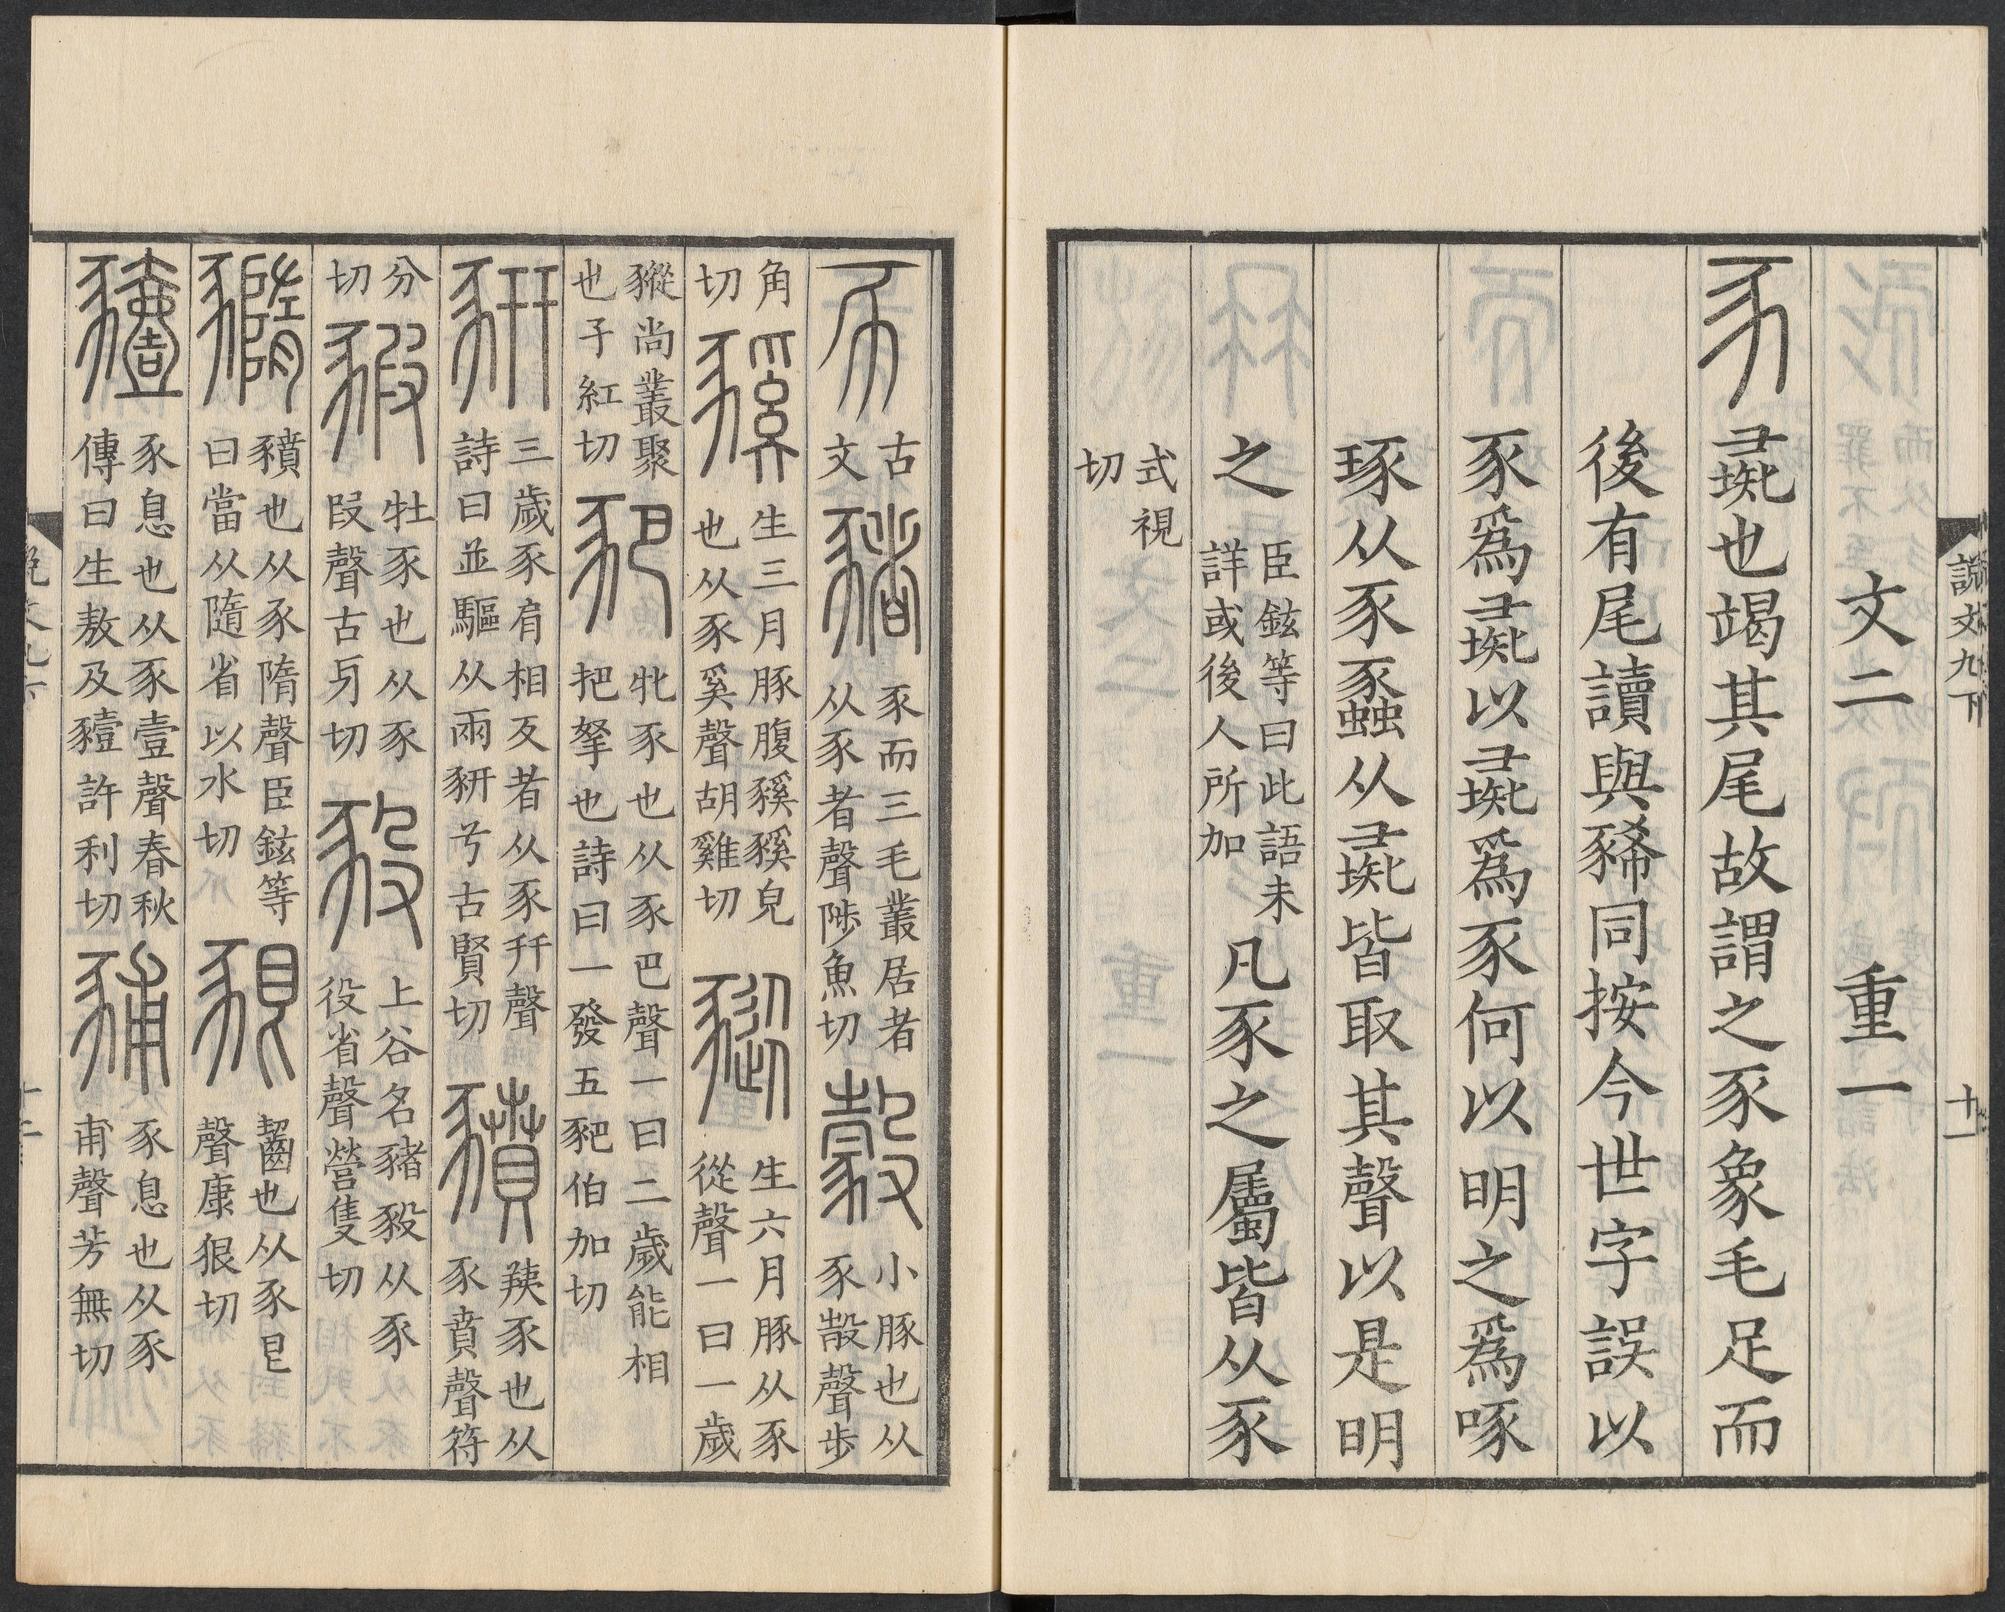 說文九下 十一
文二 重一
豕 彘也竭其尾故謂之豕象毛足而
後有尾讀與豨同按今世字誤以
豕爲彘以彘爲豕何以明之爲啄
琢从豕 从彘皆取其聲以是明
之 臣鉉等曰此語未詳或後人所加 凡豕之屬皆从豕
式視切
古文 豬 豕而三毛叢居者从豕者聲陟魚切 豰 小豚也从豕㱿聲步
角切 豯 生三月豚腹豯豯皃也从豕奚聲胡雞切 豵 生六月豚从豕從聲一曰一歲
豵尚叢聚也子紅切 豝 牝豕也从豕巴聲一曰二歲能相把拏也詩曰一發五豝伯加切
豣 三歲豕肩相及者从豕幵聲詩曰並驅从兩豣兮古賢切 豶 羠豕也从豕賁聲符
分切 豭 牡豕也从豕叚聲古牙切 豛 上谷名豬豛从豕役省聲營隻切
豶也从豕隋聲臣鉉等曰當从隨省以水切 豤 齧也从豕皀聲康很切
豷 豕息也从豕壹聲春秋傳曰生敖及豷許利切 豧 豕息也从豕甫聲芳無切